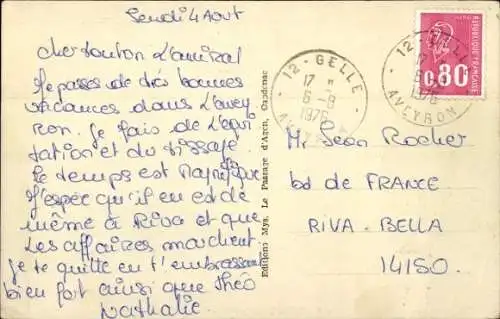 Jeudi 4 Aout
cher tonton L'amiral
Je passe de très bonnes
vacances dans L'avey
ron. Je fais de L'équi
tation et du tissage.
Le temps est magnifique
J'espère qu'il en est de
même à Riva et que
Les affaires marchent
je te quitte en t'embrassant
bien fort ainsi que Théo
Nathalie
Editions Mys, Le Passage d'Agen, Capdenac
12 - GELLE
17 H
6 - 8
1976
AVEYRON
REPUBLIQUE FRANÇAISE
0,80
12 - GELLE
17
6
1976
AVEYRON
Mr Jean Rocher
bd de FRANCE
RIVA-BELLA
14150.